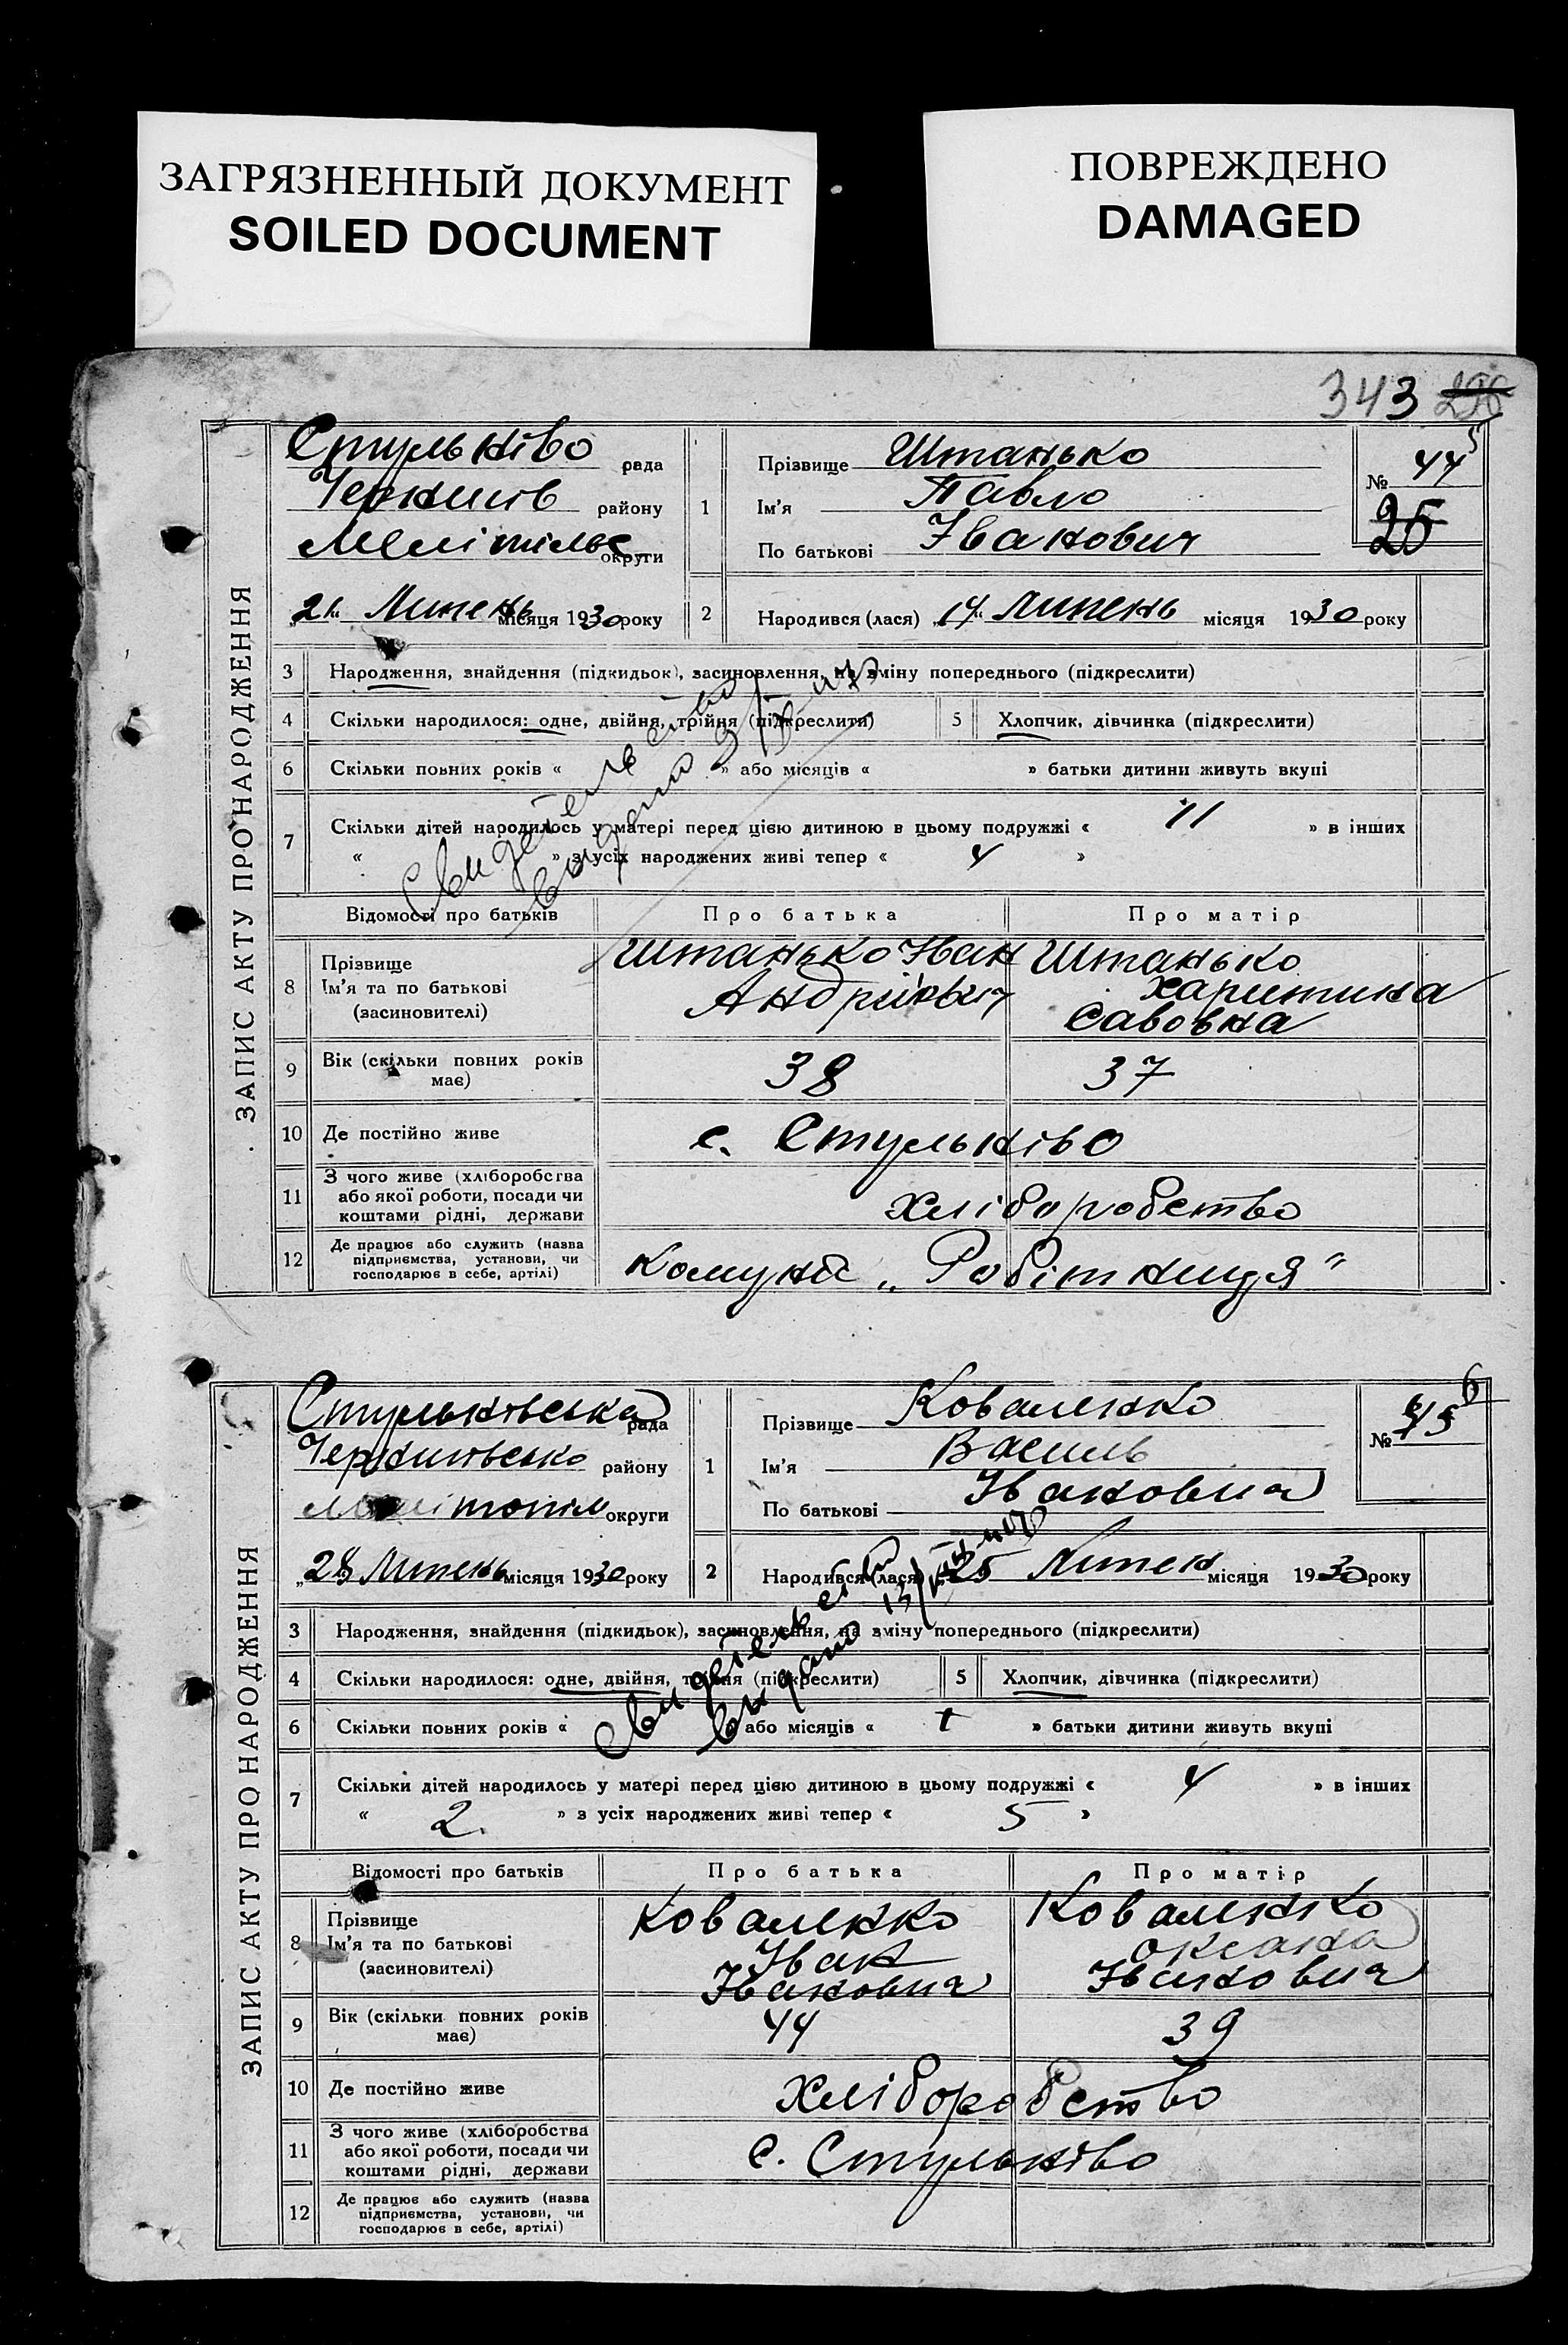 ЗАГРЯЗНЕННЫЙ ДОКУМЕНТ
SOILED DOCUMENT
ПОВРЕЖДЕНО
DAMAGED
343
ЗАПИС АКТУ ПРО НАРОДЖЕННЯ
Стульніво рада
району
округи
21 Липень місяця 1930 року
1
Прізвище Штанько
Ім'я Павло
По батькові Іванович
№ 44
25
2 Народився (лася) „14" Липень місяця 1930 року
3 Народження, знайдення (підкидьок), засиновлення, на зміну попереднього (підкреслити)
4 Скільки народилося: одне, двійня, трійня (підкреслити) 5 Хлопчик, дівчинка (підкреслити)
6 Скільки повних років « » або місяців « » батьки дитини живуть вкупі
7 Скільки дітей народилось у матері перед цією дитиною в цьому подружжі « 11 » в інших
« » з усіх народжених живі тепер « 4 »
Свидетельство
выдано
Відомості про батьків Про батька Про матір
8 Прізвище
Ім'я та по батькові
(засиновителі)
Штанько Іван
Андрійович
Штанько
Харитина
Савовна
9 Вік (скільки повних років має) 38 37
10 Де постійно живе с. Стульніво
11 З чого живе (хліборобства
або якої роботи, посади чи
коштами рідні, держави
хліборобство
12 Де працює або служить (назва
підприємства, установи, чи
господарює в себе, артілі)
Комуна „Робітниця"
ЗАПИС АКТУ ПРО НАРОДЖЕННЯ
Стульнівська рада
району
округи
„28 Липень місяця 1930 року
1
Прізвище Коваленко
Ім'я Василь
По батькові Іванович
№ 6
2 Народився (лася) 25 Липен місяця 1930 року
3 Народження, знайдення (підкидьок), засиновлення, на зміну попереднього (підкреслити)
4 Скільки народилося: одне, двійня, трійня (підкреслити) 5 Хлопчик, дівчинка (підкреслити)
6 Скільки повних років « » або місяців « » батьки дитини живуть вкупі
7 Скільки дітей народилось у матері перед цією дитиною в цьому подружжі « 4 » в інших
« 2. » з усіх народжених живі тепер « 5 »
Свидетельство
выдано
Відомості про батьків Про батька Про матір
8 Прізвище
Ім'я та по батькові
(засиновителі)
Коваленко
Іван
Іванович
Коваленко
Оксана
Івановна
9 Вік (скільки повних років має) 44 39
10 Де постійно живе хліборобство
11 З чого живе (хліборобства
або якої роботи, посади чи
коштами рідні, держави
с. Стульніво
12 Де працює або служить (назва
підприємства, установи, чи
господарює в себе, артілі)